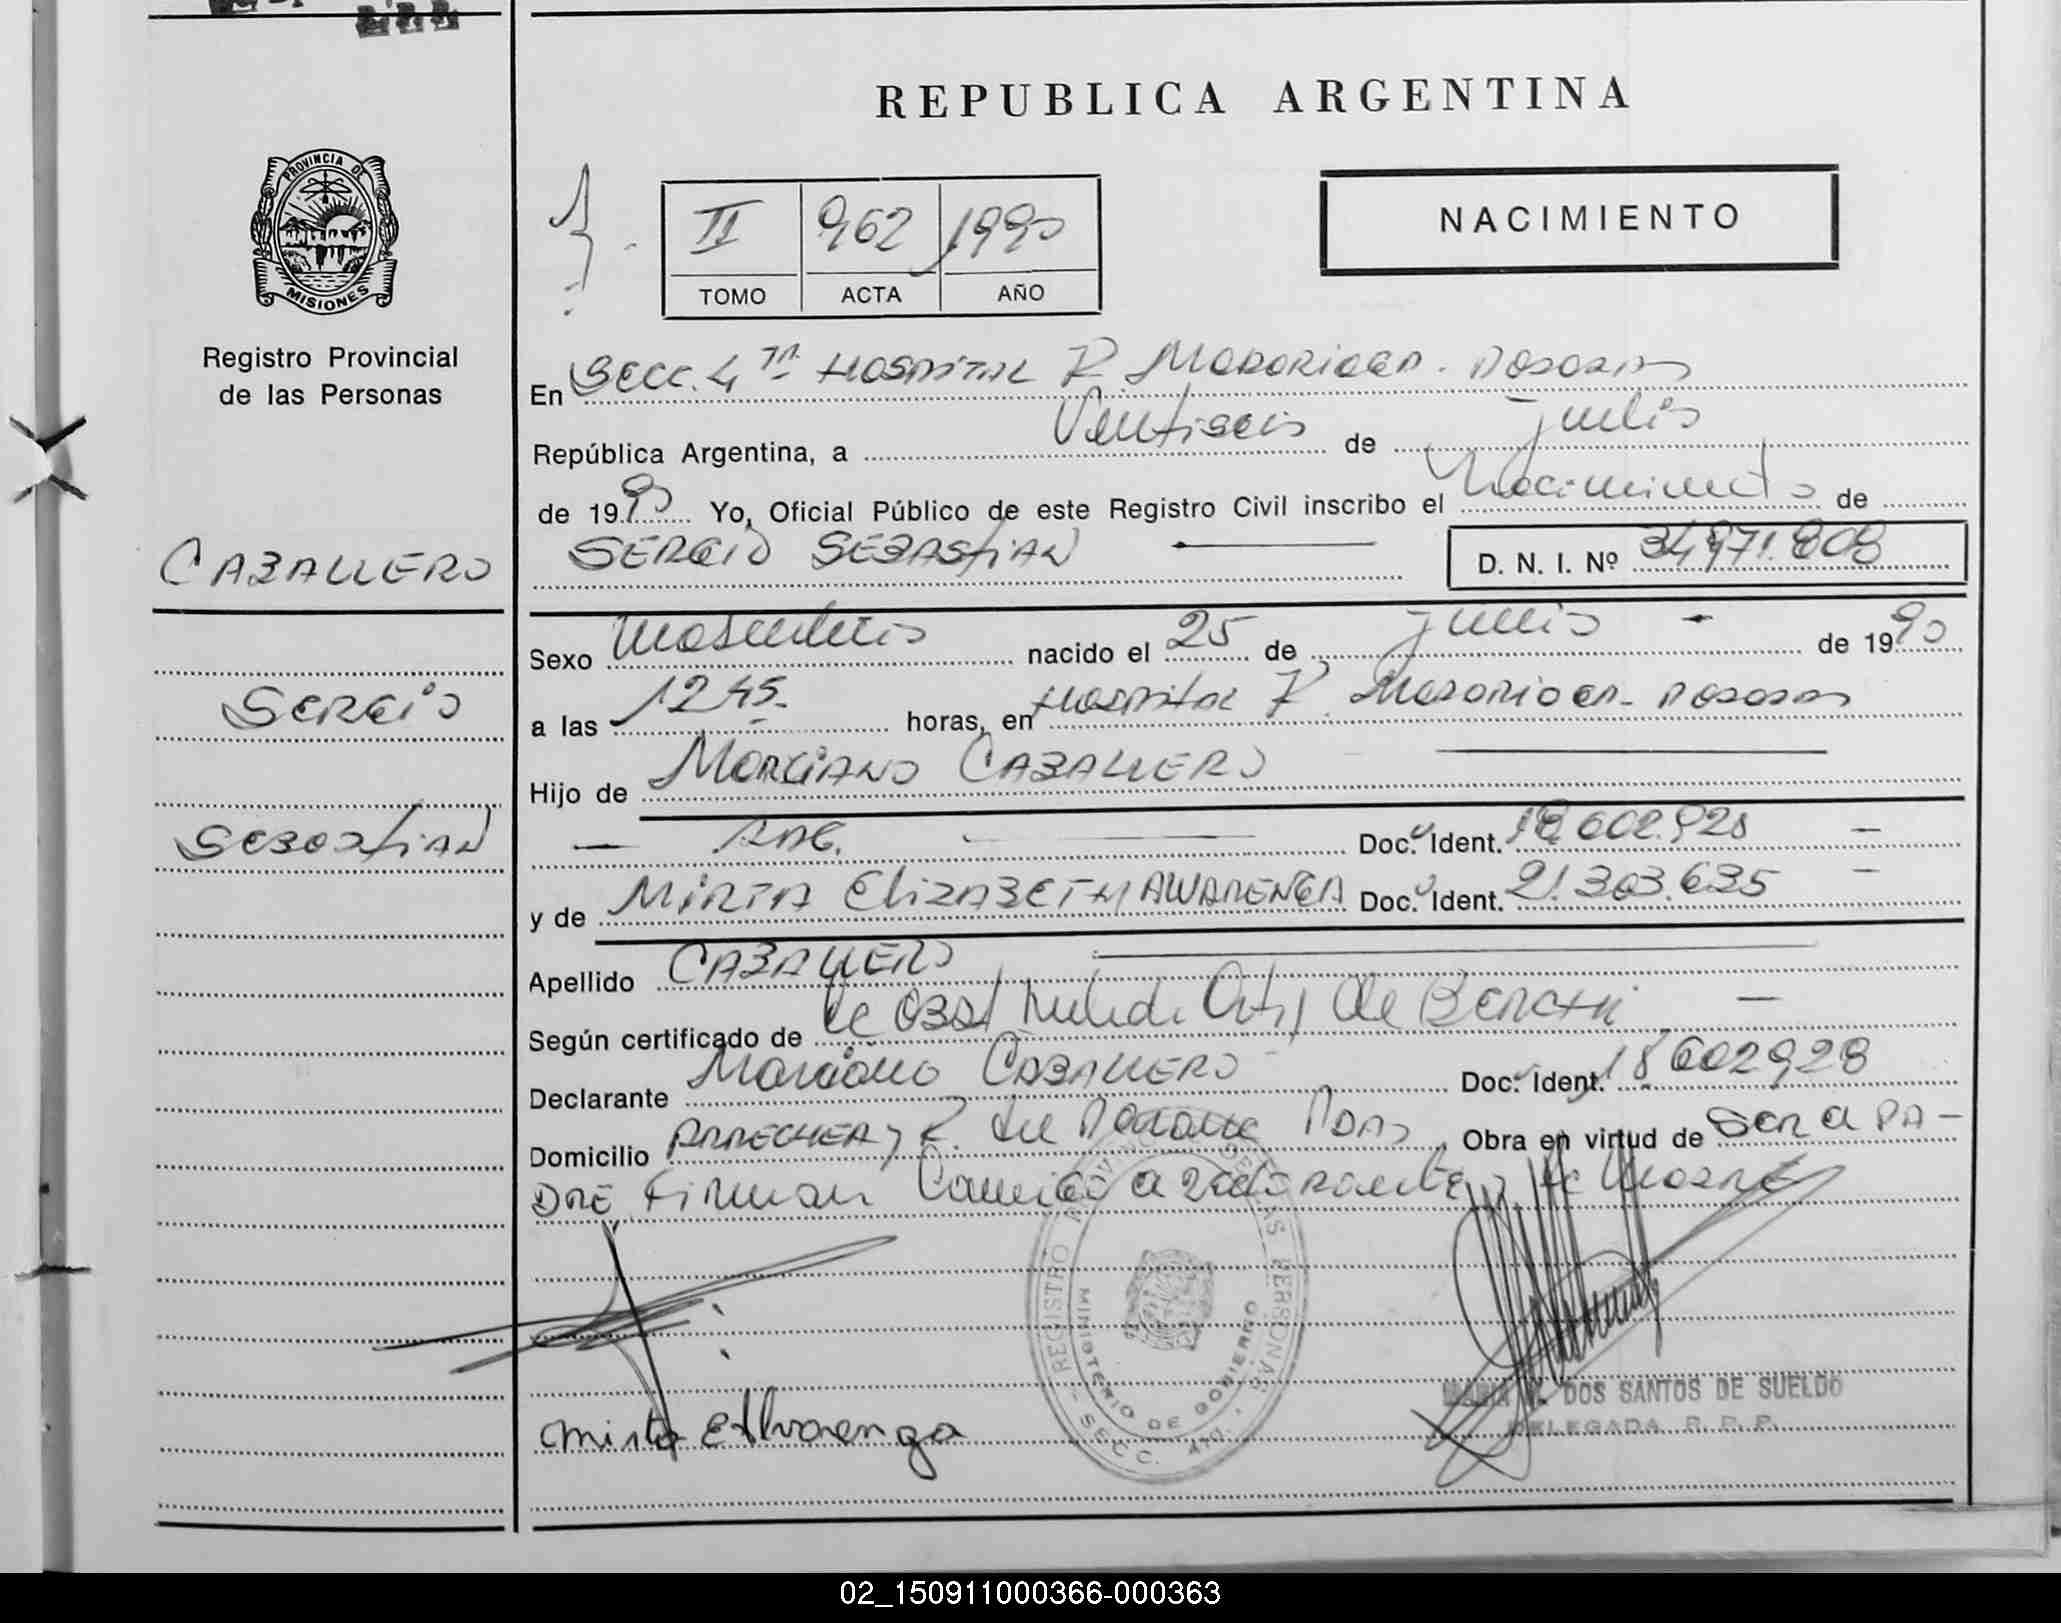 REPUBLICA ARGENTINA
PROVINCIA DE
MISIONES
Registro Provincial
de las Personas
II 962 1990
TOMO ACTA AÑO
NACIMIENTO
En Secc. 4ta Hospital R Madariaga. Posadas
República Argentina, a Veintiseis de julio
de 1990 Yo, Oficial Público de este Registro Civil inscribo el Nacimiento de
SERGIO SEBASTIAN
D. N. I. Nº 34.971.808
CABALLERO
SERGIO
SEBASTIAN
Sexo Masculino nacido el 25 de julio de 1990
a las 12 45. horas, en Hospital R. Madariaga - Posadas
Hijo de MARCIANO CABALLERO
— ARG. Doc. Ident. 18.602.928 —
y de MIRTA ELIZABETH ALVARENGA Doc. Ident. 21.303.635 —
Apellido CABALLERO
Según certificado de de —
Declarante Marciano CABALLERO Doc. Ident. 18.602928
Domicilio Obra en virtud de Ser el PA-
DRE Firman la madre
REGISTRO DE LAS PERSONAS
MINISTERIO DE GOBIERNO
SECC. 4ta.
Mirta E Alvarenga
MARIA DOS SANTOS DE SUELDO
DELEGADA R. P. P.
02_150911000366-000363